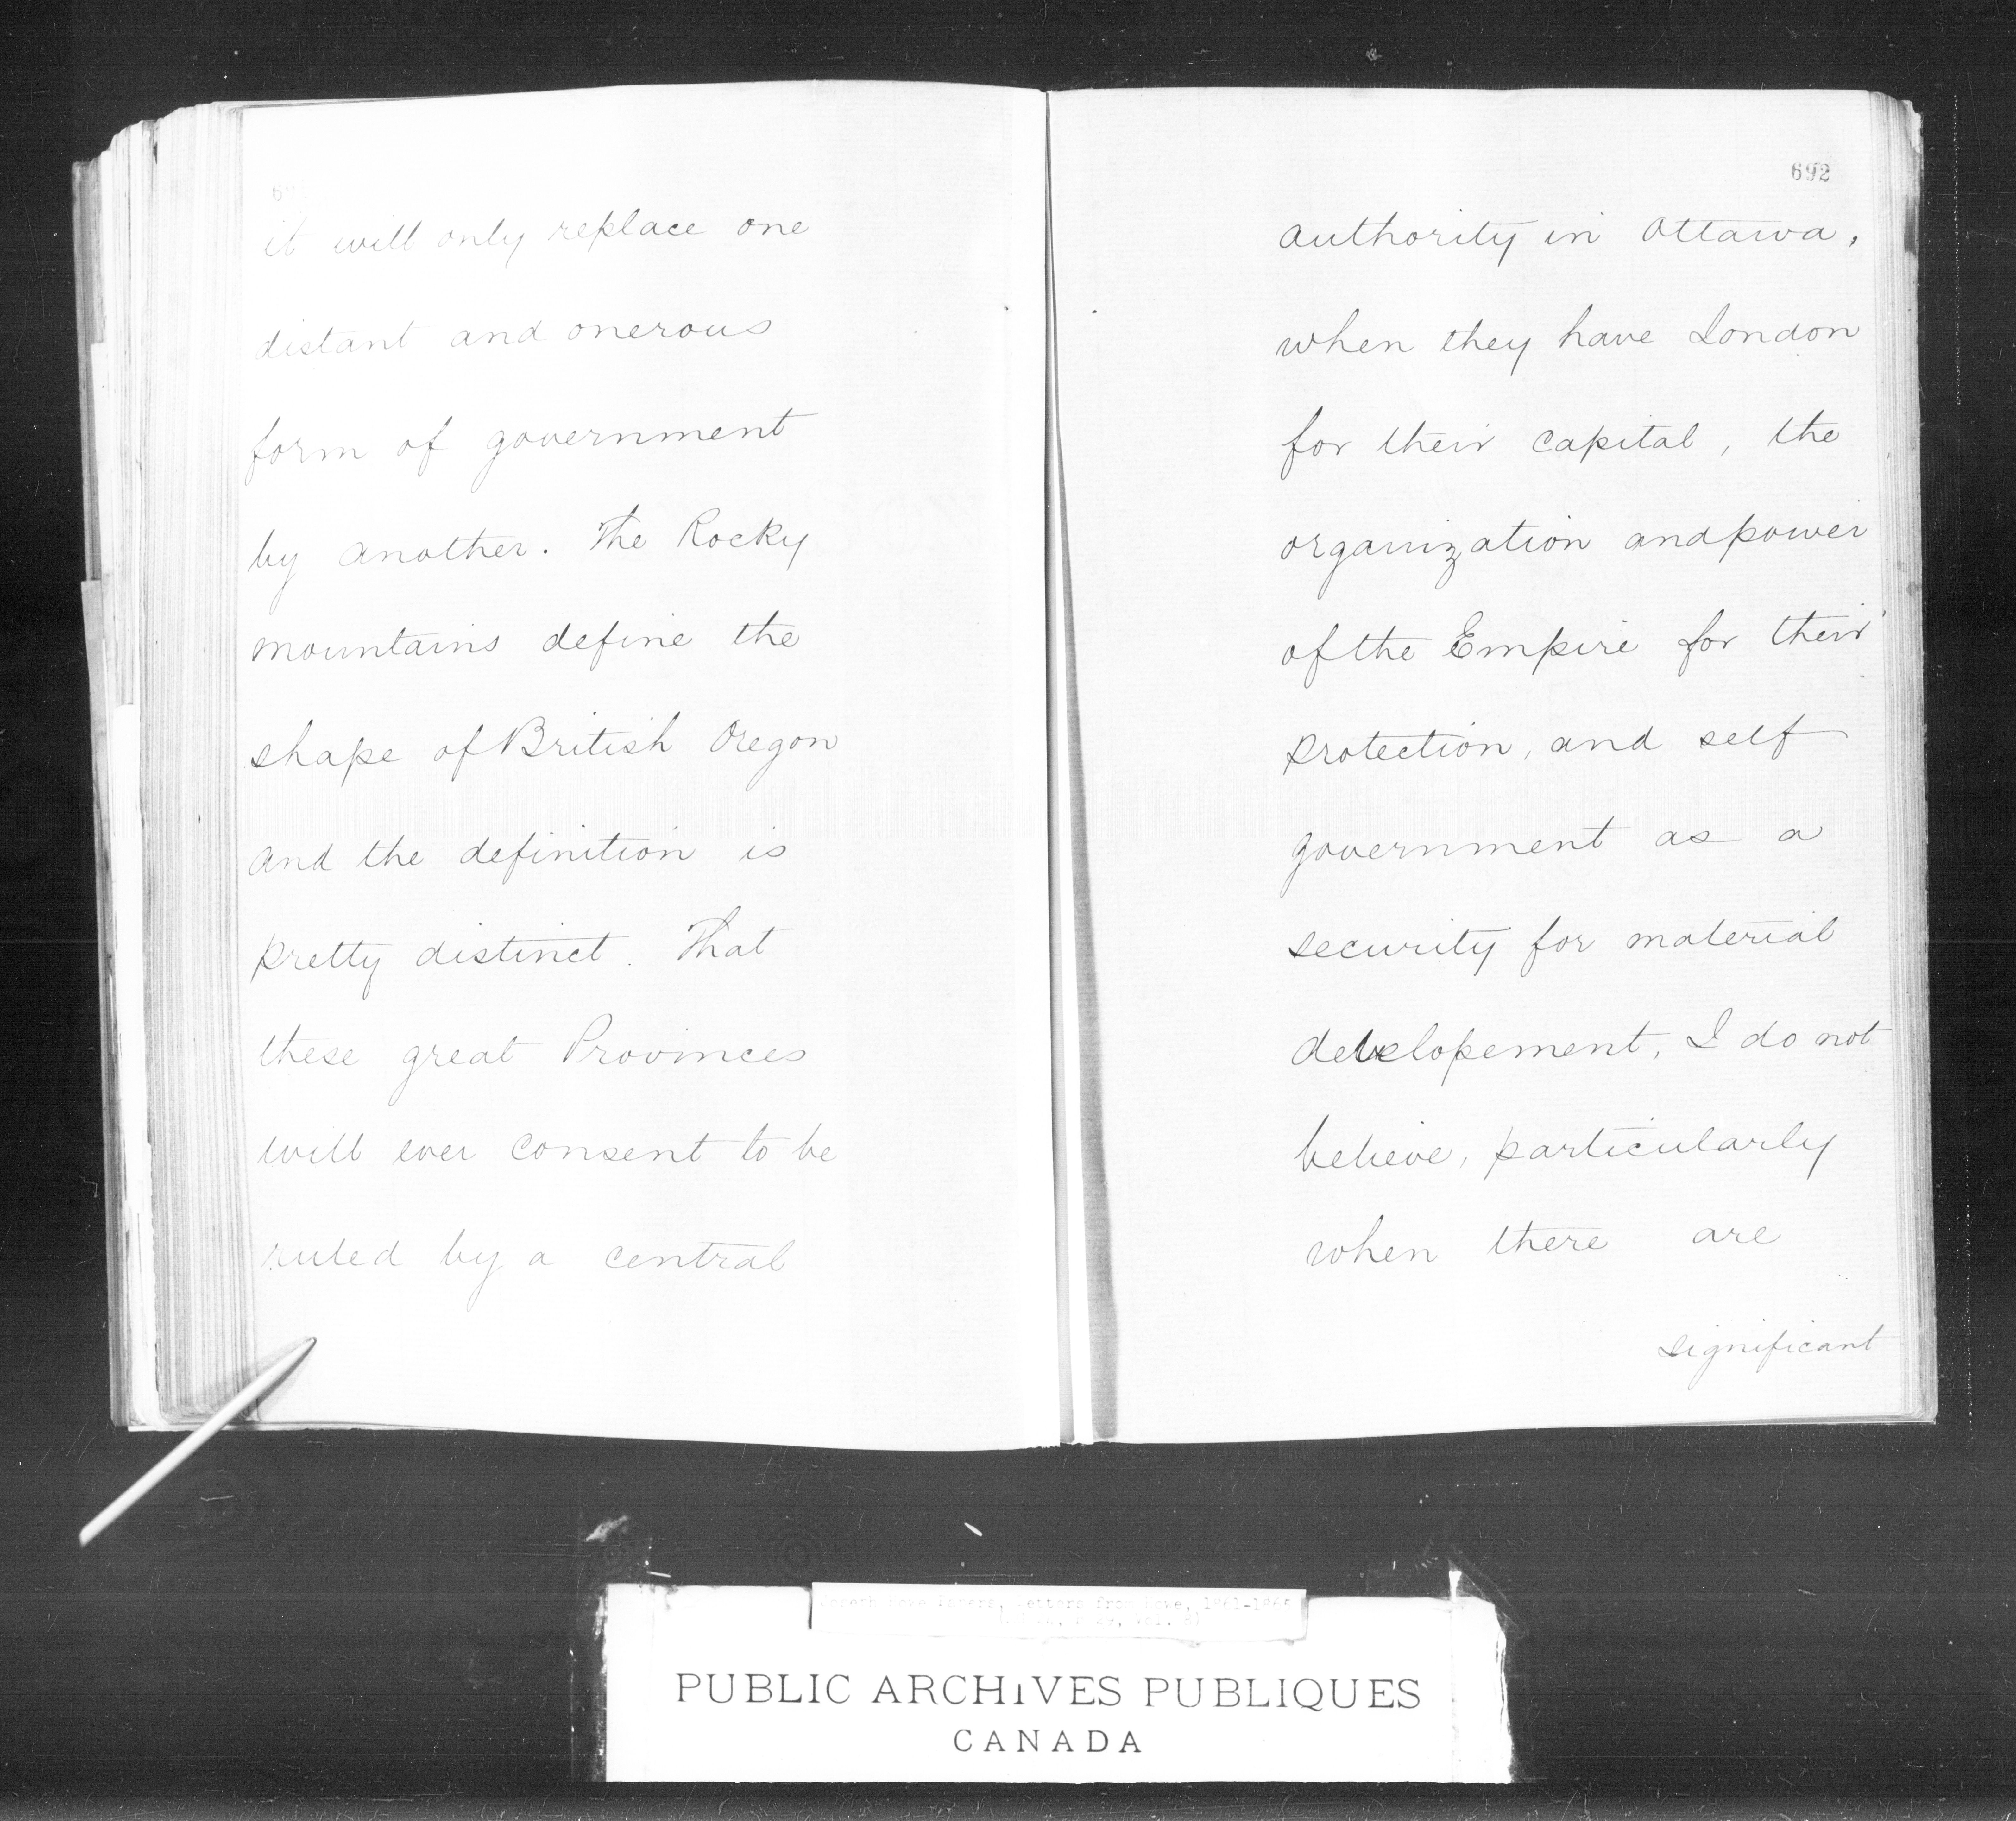 it will only replace one
distant and onerous
form of government
by another. The Rocky
mountains define the
shape of British Oregon
and the definition is
pretty distinct. That
these great Provinces
will ever consent to be
ruled by a central
692
authority in Ottawa,
when they have London
for their capital, the
organization and power
of the Empire for their
protection, and self
government as a
security for material
developement, I do not
believe, particularly
when there are
significant
Joseph Howe Papers, Letters from Howe, 1861-1865
PUBLIC ARCHIVES PUBLIQUES
CANADA